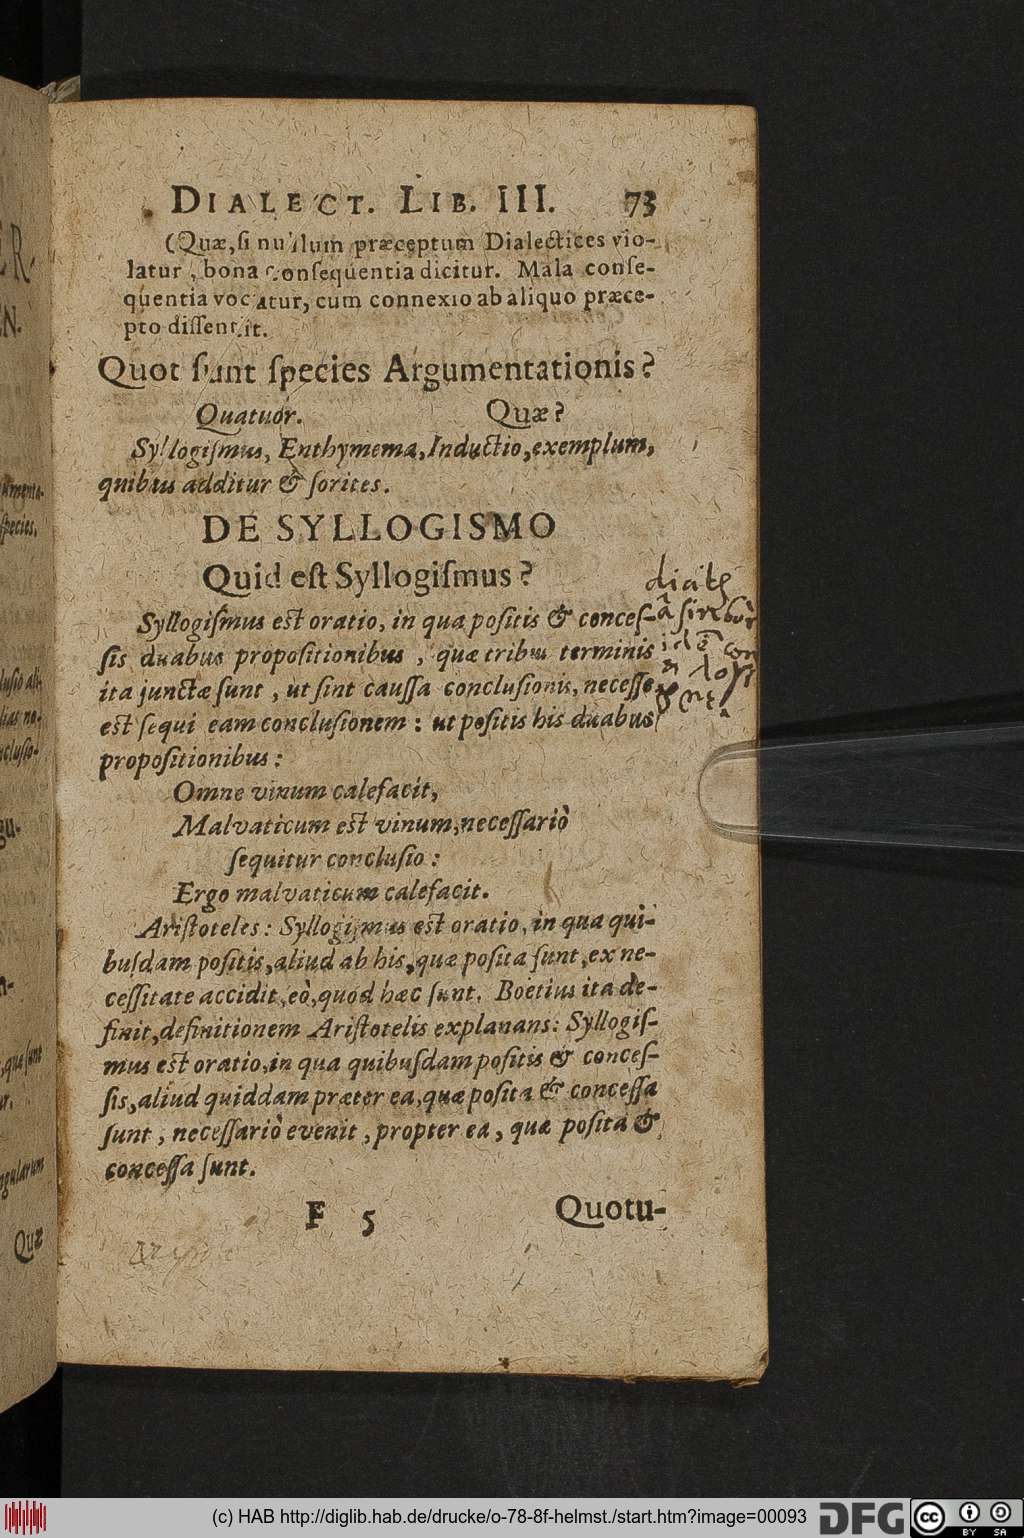 DIALECT. LIB. III. 73
(Quæ, ſi nullum præceptum Dialectices vio-
latur, bona conſequentia dicitur. Mala conſe-
quentia vocatur, cum connexio ab aliquo præce-
pto diſſentit.
Quot ſunt ſpecies Argumentationis?
Quatuor. Quæ?
Syllogiſmus, Enthymema, Inductio, exemplum,
quibus additur & ſorites.
DE SYLLOGISMO
Quid eſt Syllogiſmus?
Syllogiſmus est oratio, in qua poſitis & conceſ-
ſis duabus propoſitionibus, quæ tribus terminis
ita junctæ ſunt, ut ſint cauſſa concluſionis, neceſſe
est ſequi eam concluſionem: ut poſitis his duabus
propoſitionibus:
Omne vinum calefacit,
Malvaticum est vinum, neceſſariò
ſequitur concluſio:
Ergo malvaticum calefacit.
Ariſtoteles: Syllogiſmus est oratio, in qua qui-
buſdam poſitis, aliud ab his, quæ poſita ſunt, ex ne-
ceſſitate accidit, eò, quod hæc ſunt. Boetius ita de-
finit, definitionem Ariſtotelis explanans: Syllogiſ-
mus est oratio, in qua quibuſdam poſitis & conceſ-
ſis, aliud quiddam præter ea, quæ poſita & conceſſa
ſunt, neceſſariò evenit, propter ea, quæ poſita &
conceſſa ſunt.
F 5 Quotu-
(c) HAB http://diglib.hab.de/drucke/o-78-8f-helmst./start.htm?image=00093
DFG
cc BY SA